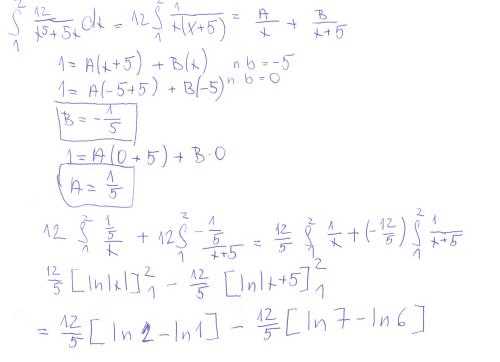 ∫₁² 12/(x⁵+5x) dx = 12 ∫₁² 1/(x(x+5)) = A/x + B/(x+5)
1 = A(x+5) + B(x) n b = -5
1 = A(-5+5) + B(-5) n b = 0
B = -1/5
1 = A(0+5) + B·0
A = 1/5
12 ∫₁² (1/5)/x + 12 ∫₁² (-1/5)/(x+5) = 12/5 ∫₁² 1/x + (-12/5) ∫₁² 1/(x+5)
12/5 [ln|x|]₁² - 12/5 [ln|x+5]₁²
= 12/5 [ln 2 - ln 1] - 12/5 [ln 7 - ln 6]